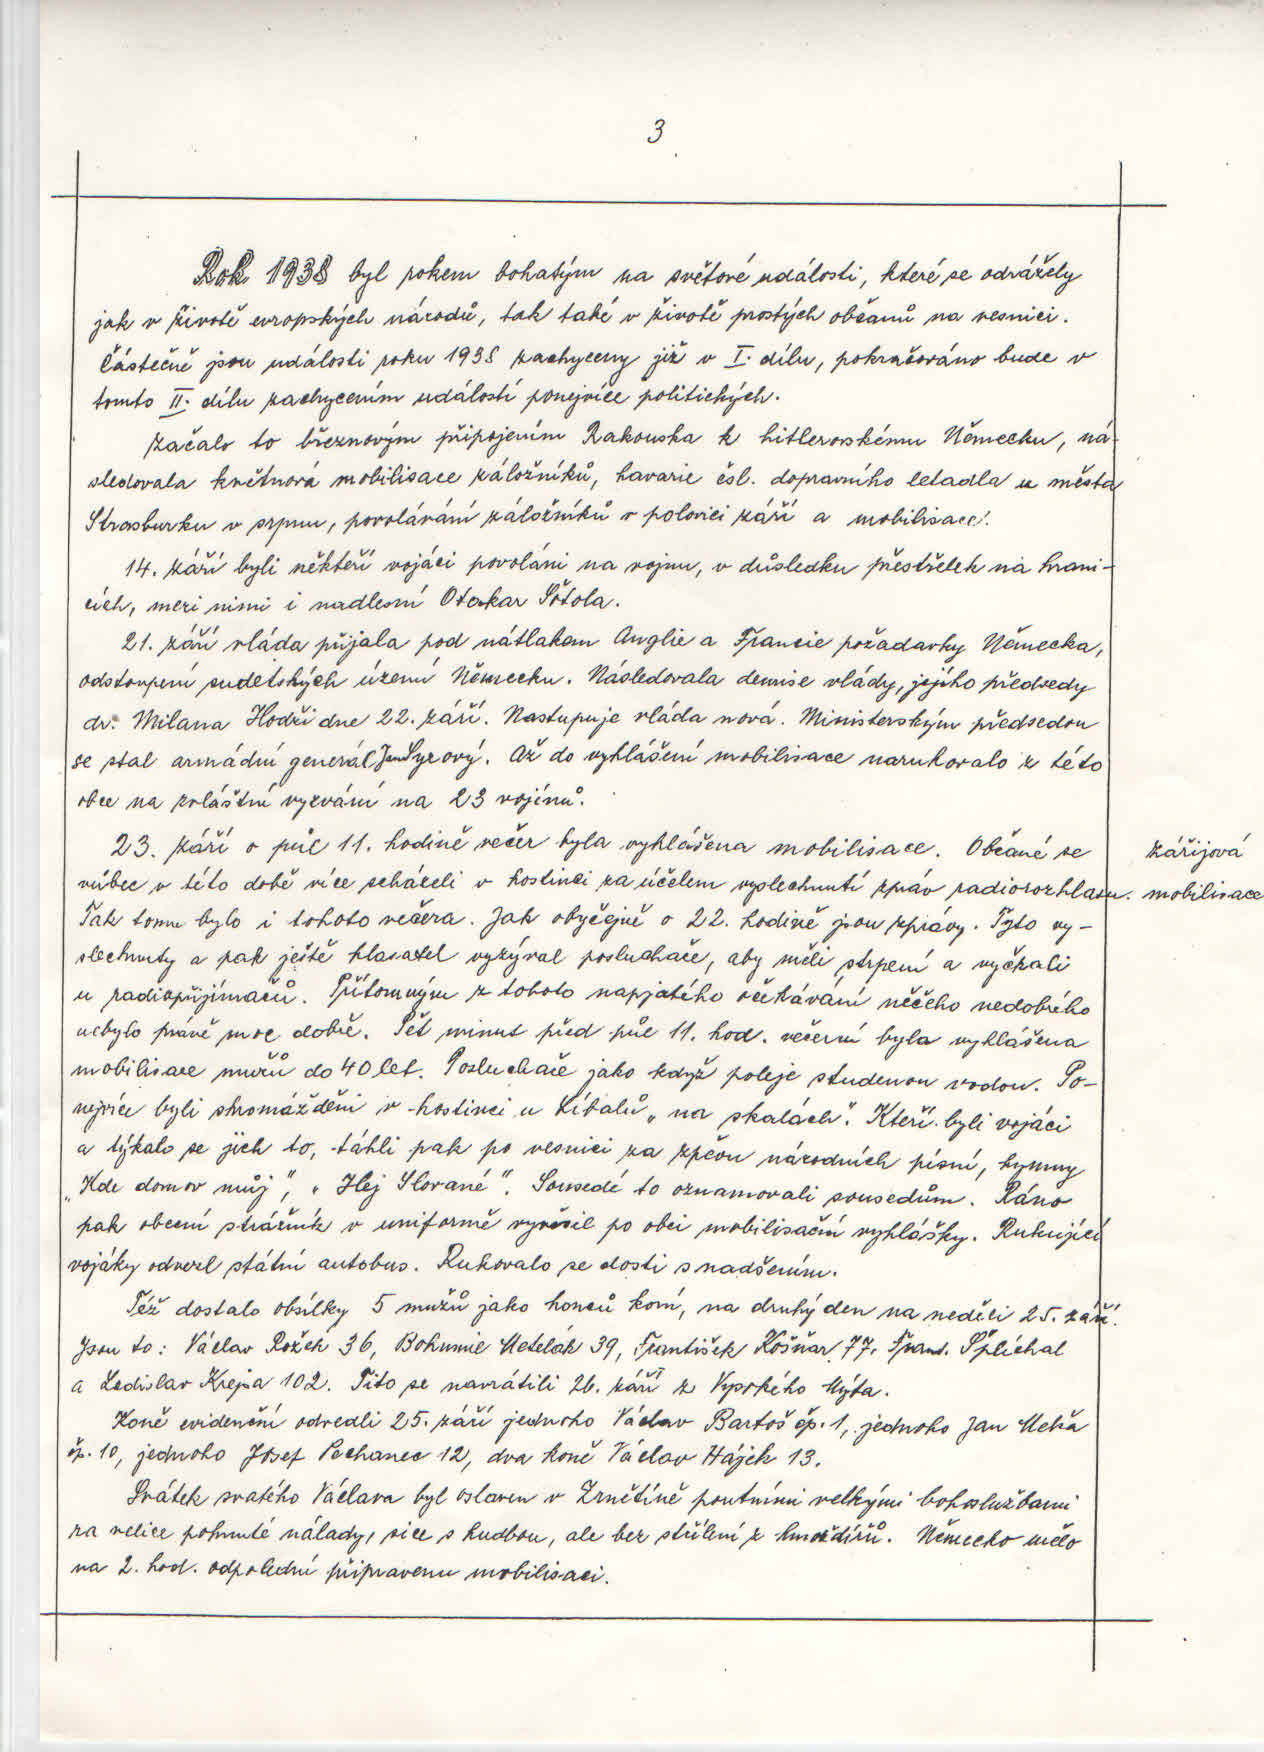 3
Rok 1938 byl rokem bohatým na světové události, které se odrážely
jak v životě evropských národů, tak také v životě prostých občanů na vesnici.
Částečně jsou události roku 1938 zachyceny již v I. dílu, pokračováno bude v
tomto II. dílu zachycením událostí ponejvíce politických.
Začalo to březnovým připojením Rakouska k hitlerovskému Německu, ná-
sledovala květnová mobilisace záložníků, havarie čsl. dopravního letadla u města
Strasburku v srpnu, povolávání záložníků v polovici září a mobilisace.
14. září byli někteří vojáci povoláni na vojnu, v důsledku přestřelek na hrani-
cích, mezi nimi i nadlesní Otakar Šótola.
21. září vláda přijala pod nátlakem Anglie a Francie požadavky Německa,
odstoupení sudetských území Německu. Následovala demise vlády, jejího předsedy
dr. Milana Hodži dne 22. září. Nastupuje vláda nová. Ministerským předsedou
se stal armádní generál Jan Syrový. Až do vyhlášení mobilisace narukovalo z této
obce na zvláštní vyzvání na 23 vojínů.
23. září o půl 11. hodině večer byla vyhlášena mobilisace. Občané se
vůbec v této době více scházeli v hostinci za účelem vyslechnutí zpráv radiorozhlasu.
zářijová
mobilisace
Tak tomu bylo i tohoto večera. Jak obyčejně o 22. hodině jsou zprávy. Tyto vy-
slechnuty a pak ještě hlasatel vyzýval posluchače, aby měli strpení a vyčkali
u radiopřijímačů. Přítomným z tohoto napjatého očekávání něčeho nedobrého
nebylo právě moc dobře. Pět minut před půl 11. hod. večerní byla vyhlášena
mobilisace mužů do 40 let. Posluchače jako když poleje studenou vodou. Po-
nejvíce byli shromážděni v hostinci u Líbalů „na skalách". Kteří byli vojáci
a týkalo se jich to, táhli pak po vesnici za zpěvu národních písní, hymny
„Kde domov můj", „Hej Slované". Sousedé to oznamovali sousedům. Ráno
pak obecní strážník v uniformě vyvěsil po obci mobilisační vyhlášky. Rukující
vojáky odvezl státní autobus. Rukovalo se dosti s nadšením.
Též dostalo obsílky 5 mužů jako honců koní, na druhý den na neděli 25. září.
Jsou to: Václav Rožek 36, Bohumil Metelák 39, František Košňar 77, Frant. Šplíchal
a Ladislav Krejsa 102. Tito se navrátili 26. září z Vysokého Mýta.
Koně evidenční odvedli 25. září jednoho Václav Bartoš čp. 1, jednoho Jan
čp. 10, jednoho Josef Pechanec 12, dva koně Václav Hájek 13.
Svátek svatého Václava byl oslaven v Zrnětíně poutními velkými bohoslužbami
za velice pohnuté nálady, sice s hudbou, ale bez střílení z hmoždířů. Německo mělo
na 2. hod. odpolední připravenu mobilisaci.